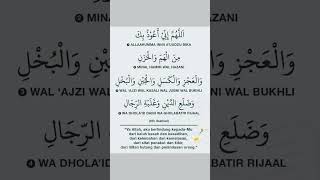 اَللّٰهُمَّ إِنِّيْ أَعُوْذُ بِكَ
ALLAHUMMA INNI A'UDZU BIKA
مِنَ الْهَمِّ وَالْحَزَنِ
MINAL HAMMI WAL HAZANI
وَالْعَجْزِ وَالْكَسَلِ وَالْجُبْنِ وَالْبُخْلِ
WAL 'AJZI WAL KASALI WAL JUBNI WAL BUKHLI
وَضَلَعِ الدَّيْنِ وَغَلَبَةِ الرِّجَالِ
WA DHOLA'ID DAINI WA GHOLABATIR RIJAAL
"Ya Allah, aku berlindung kepada-Mu
dari keluh kesah dan kesedihan,
dari kelemahan dan kemalasan,
dari sifat penakut dan kikir,
dari lilitan hutang dan penindasan orang."